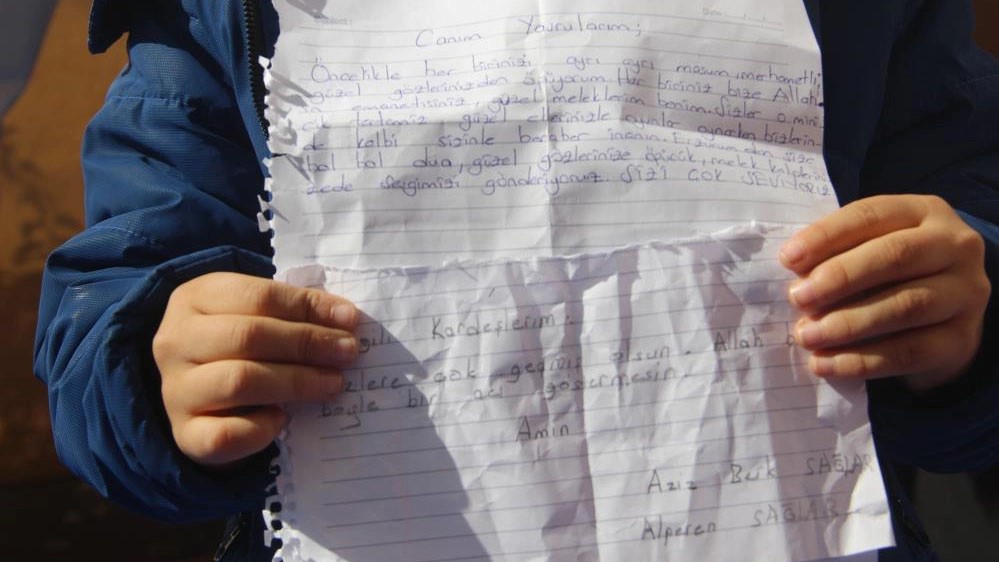 Canım Yavrularım;
Öncelikle her birinizi ayrı ayrı masum, merhametli,
güzel gözlerinizden öpüyorum. Her biriniz bize Allah
emanetisiniz, güzel meleklerim benim. Sizler o mini
cik güzel ellerinizle
de kalbi sizinle beraber inanın. Erzurum'dan size
bol bol dua, güzel gözlerinize öpücük, melek kalplerini
zede sevgimizi gönderiyoruz. SİZİ ÇOK SEVİYORUZ
Kardeşlerim;
çok geçmiş olsun. Allah
böyle bir acı göstermesin.
Amin
Aziz Berk SAĞLAR
Alperen SAĞLAR